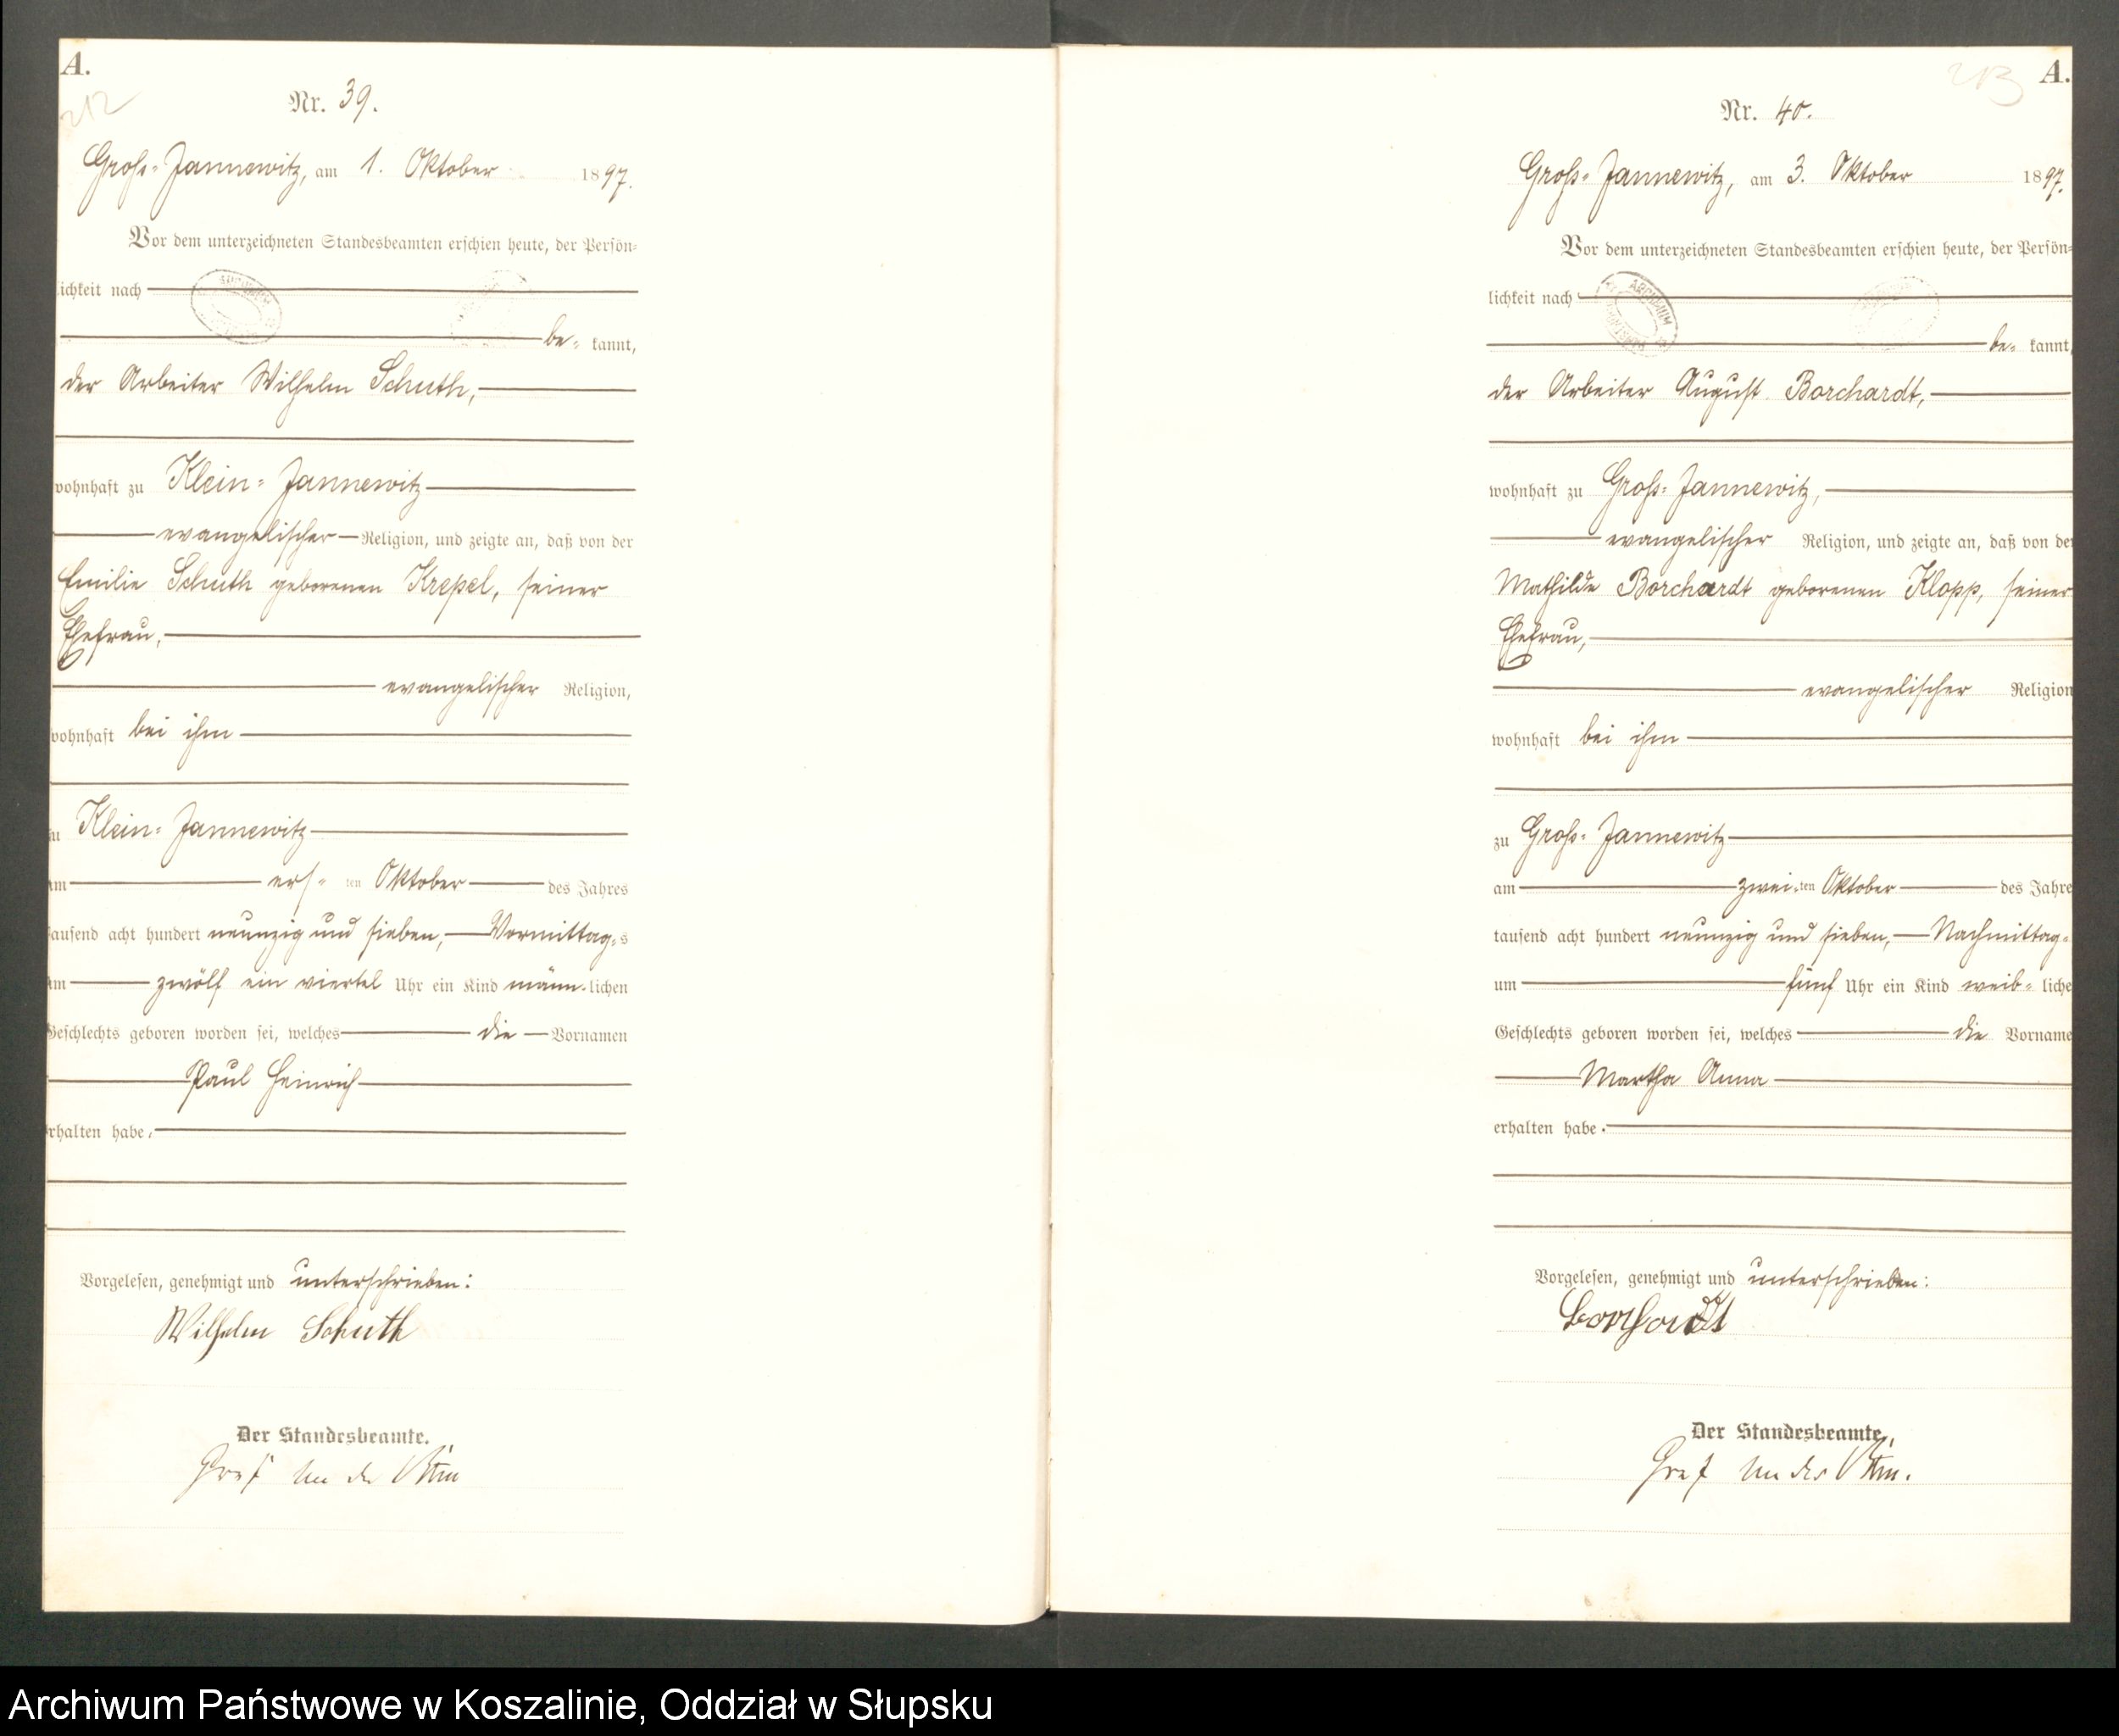 A.
212
Nr. 39.
Groß-Jannewitz, am 1. Oktober 1897.
Vor dem unterzeichneten Standesbeamten erschien heute, der Persön-
lichkeit nach
be- kannt,
der Arbeiter Wilhelm Schuth,
wohnhaft zu Klein-Jannewitz
evangelischer Religion, und zeigte an, daß von der
Emilie Schuth geborenen Krepel, seiner
Ehefrau,
evangelischer Religion,
wohnhaft bei ihm
zu Klein-Jannewitz
am ers-ten Oktober des Jahres
tausend acht hundert neunzig und sieben, Vormittag-s
um zwölf ein viertel Uhr ein Kind männ-lichen
Geschlechts geboren worden sei, welches die Vornamen
Paul Heinrich
erhalten habe.
Vorgelesen, genehmigt und unterschrieben:
Wilhelm Schuth
Der Standesbeamte.
Graf
213
A.
Nr. 40.
Groß-Jannewitz, am 3. Oktober 1897.
Vor dem unterzeichneten Standesbeamten erschien heute, der Persön-
lichkeit nach
ARCHIWUM
be- kannt,
der Arbeiter August Borchardt,
wohnhaft zu Groß-Jannewitz,
evangelischer Religion, und zeigte an, daß von der
Mathilde Borchardt geborenen Klopp, seiner
Ehefrau,
evangelischer Religion
wohnhaft bei ihm
zu Groß-Jannewitz
am zwei-ten Oktober des Jahre
tausend acht hundert neunzig und sieben, Nachmittag-
um fünf Uhr ein Kind weib-liche
Geschlechts geboren worden sei, welches die Vorname
Martha Anna
erhalten habe.
Vorgelesen, genehmigt und unterschrieben:
Borchardt
Der Standesbeamte.
Graf
Archiwum Państwowe w Koszalinie, Oddział w Słupsku